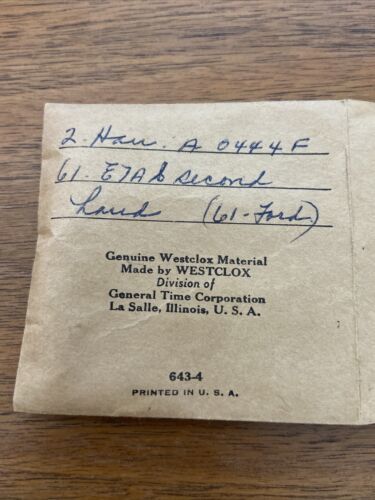 2. Han. A 0444F
61. E7AB second
hand (61-Ford)
Genuine Westclox Material
Made by WESTCLOX
Division of
General Time Corporation
La Salle, Illinois, U. S. A.
643-4
PRINTED IN U. S. A.